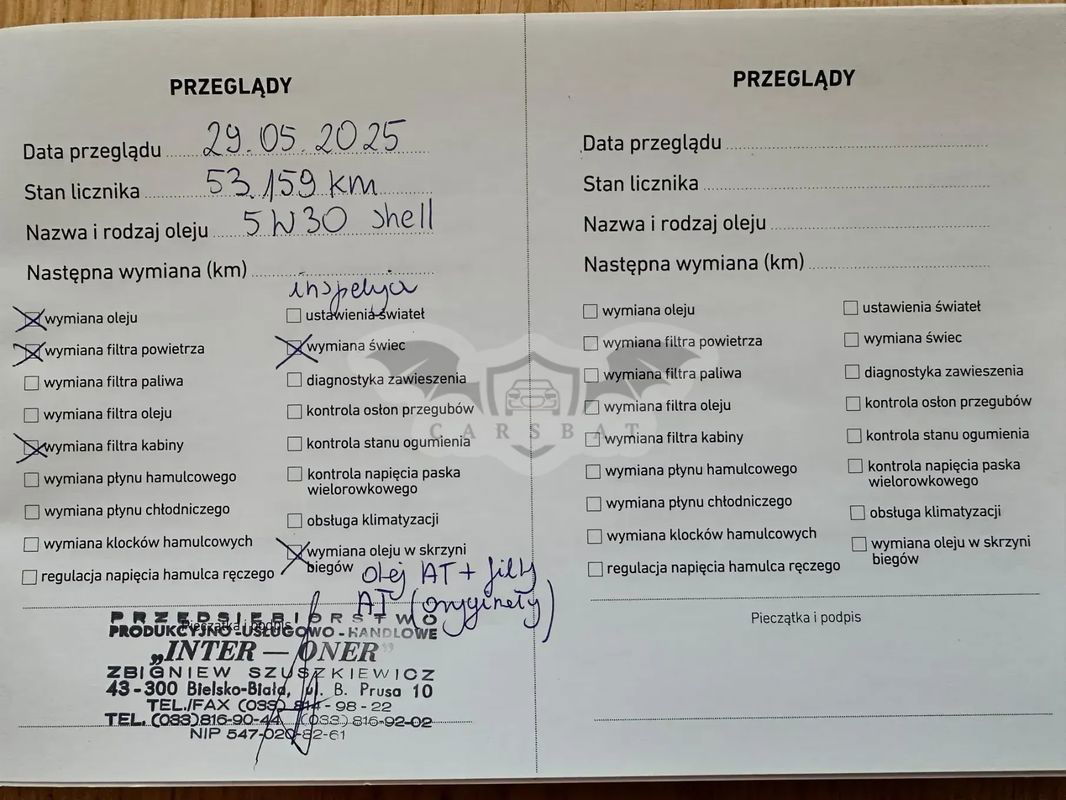 PRZEGLĄDY
Data przeglądu 29.05.2025
Stan licznika 53.159 km
Nazwa i rodzaj oleju 5W30 shell
Następna wymiana (km)
inspekcja
wymiana oleju
wymiana filtra powietrza
wymiana filtra paliwa
wymiana filtra oleju
wymiana filtra kabiny
wymiana płynu hamulcowego
wymiana płynu chłodniczego
wymiana klocków hamulcowych
regulacja napięcia hamulca ręczego
ustawienia świateł
wymiana świec
diagnostyka zawieszenia
kontrola osłon przegubów
kontrola stanu ogumienia
kontrola napięcia paska
wielorowkowego
obsługa klimatyzacji
wymiana oleju w skrzyni
biegów
Olej AT + filtr
AT (oryginały)
Pieczątka i podpis
PRZEDSIĘBIORSTWO
PRODUKCYJNO-USŁUGOWO-HANDLOWE
„INTER — ONER"
ZBIGNIEW SZUSZKIEWICZ
43-300 Bielsko-Biała, ul. B. Prusa 10
TEL./FAX (033) 814-98-22
TEL. (033)816-90-44 (033)816-92-02
NIP 547-020-82-61
PRZEGLĄDY
Data przeglądu
Stan licznika
Nazwa i rodzaj oleju
Następna wymiana (km)
wymiana oleju
wymiana filtra powietrza
wymiana filtra paliwa
wymiana filtra oleju
wymiana filtra kabiny
wymiana płynu hamulcowego
wymiana płynu chłodniczego
wymiana klocków hamulcowych
regulacja napięcia hamulca ręczego
ustawienia świateł
wymiana świec
diagnostyka zawieszenia
kontrola osłon przegubów
kontrola stanu ogumienia
kontrola napięcia paska
wielorowkowego
obsługa klimatyzacji
wymiana oleju w skrzyni
biegów
Pieczątka i podpis
CARSBAT